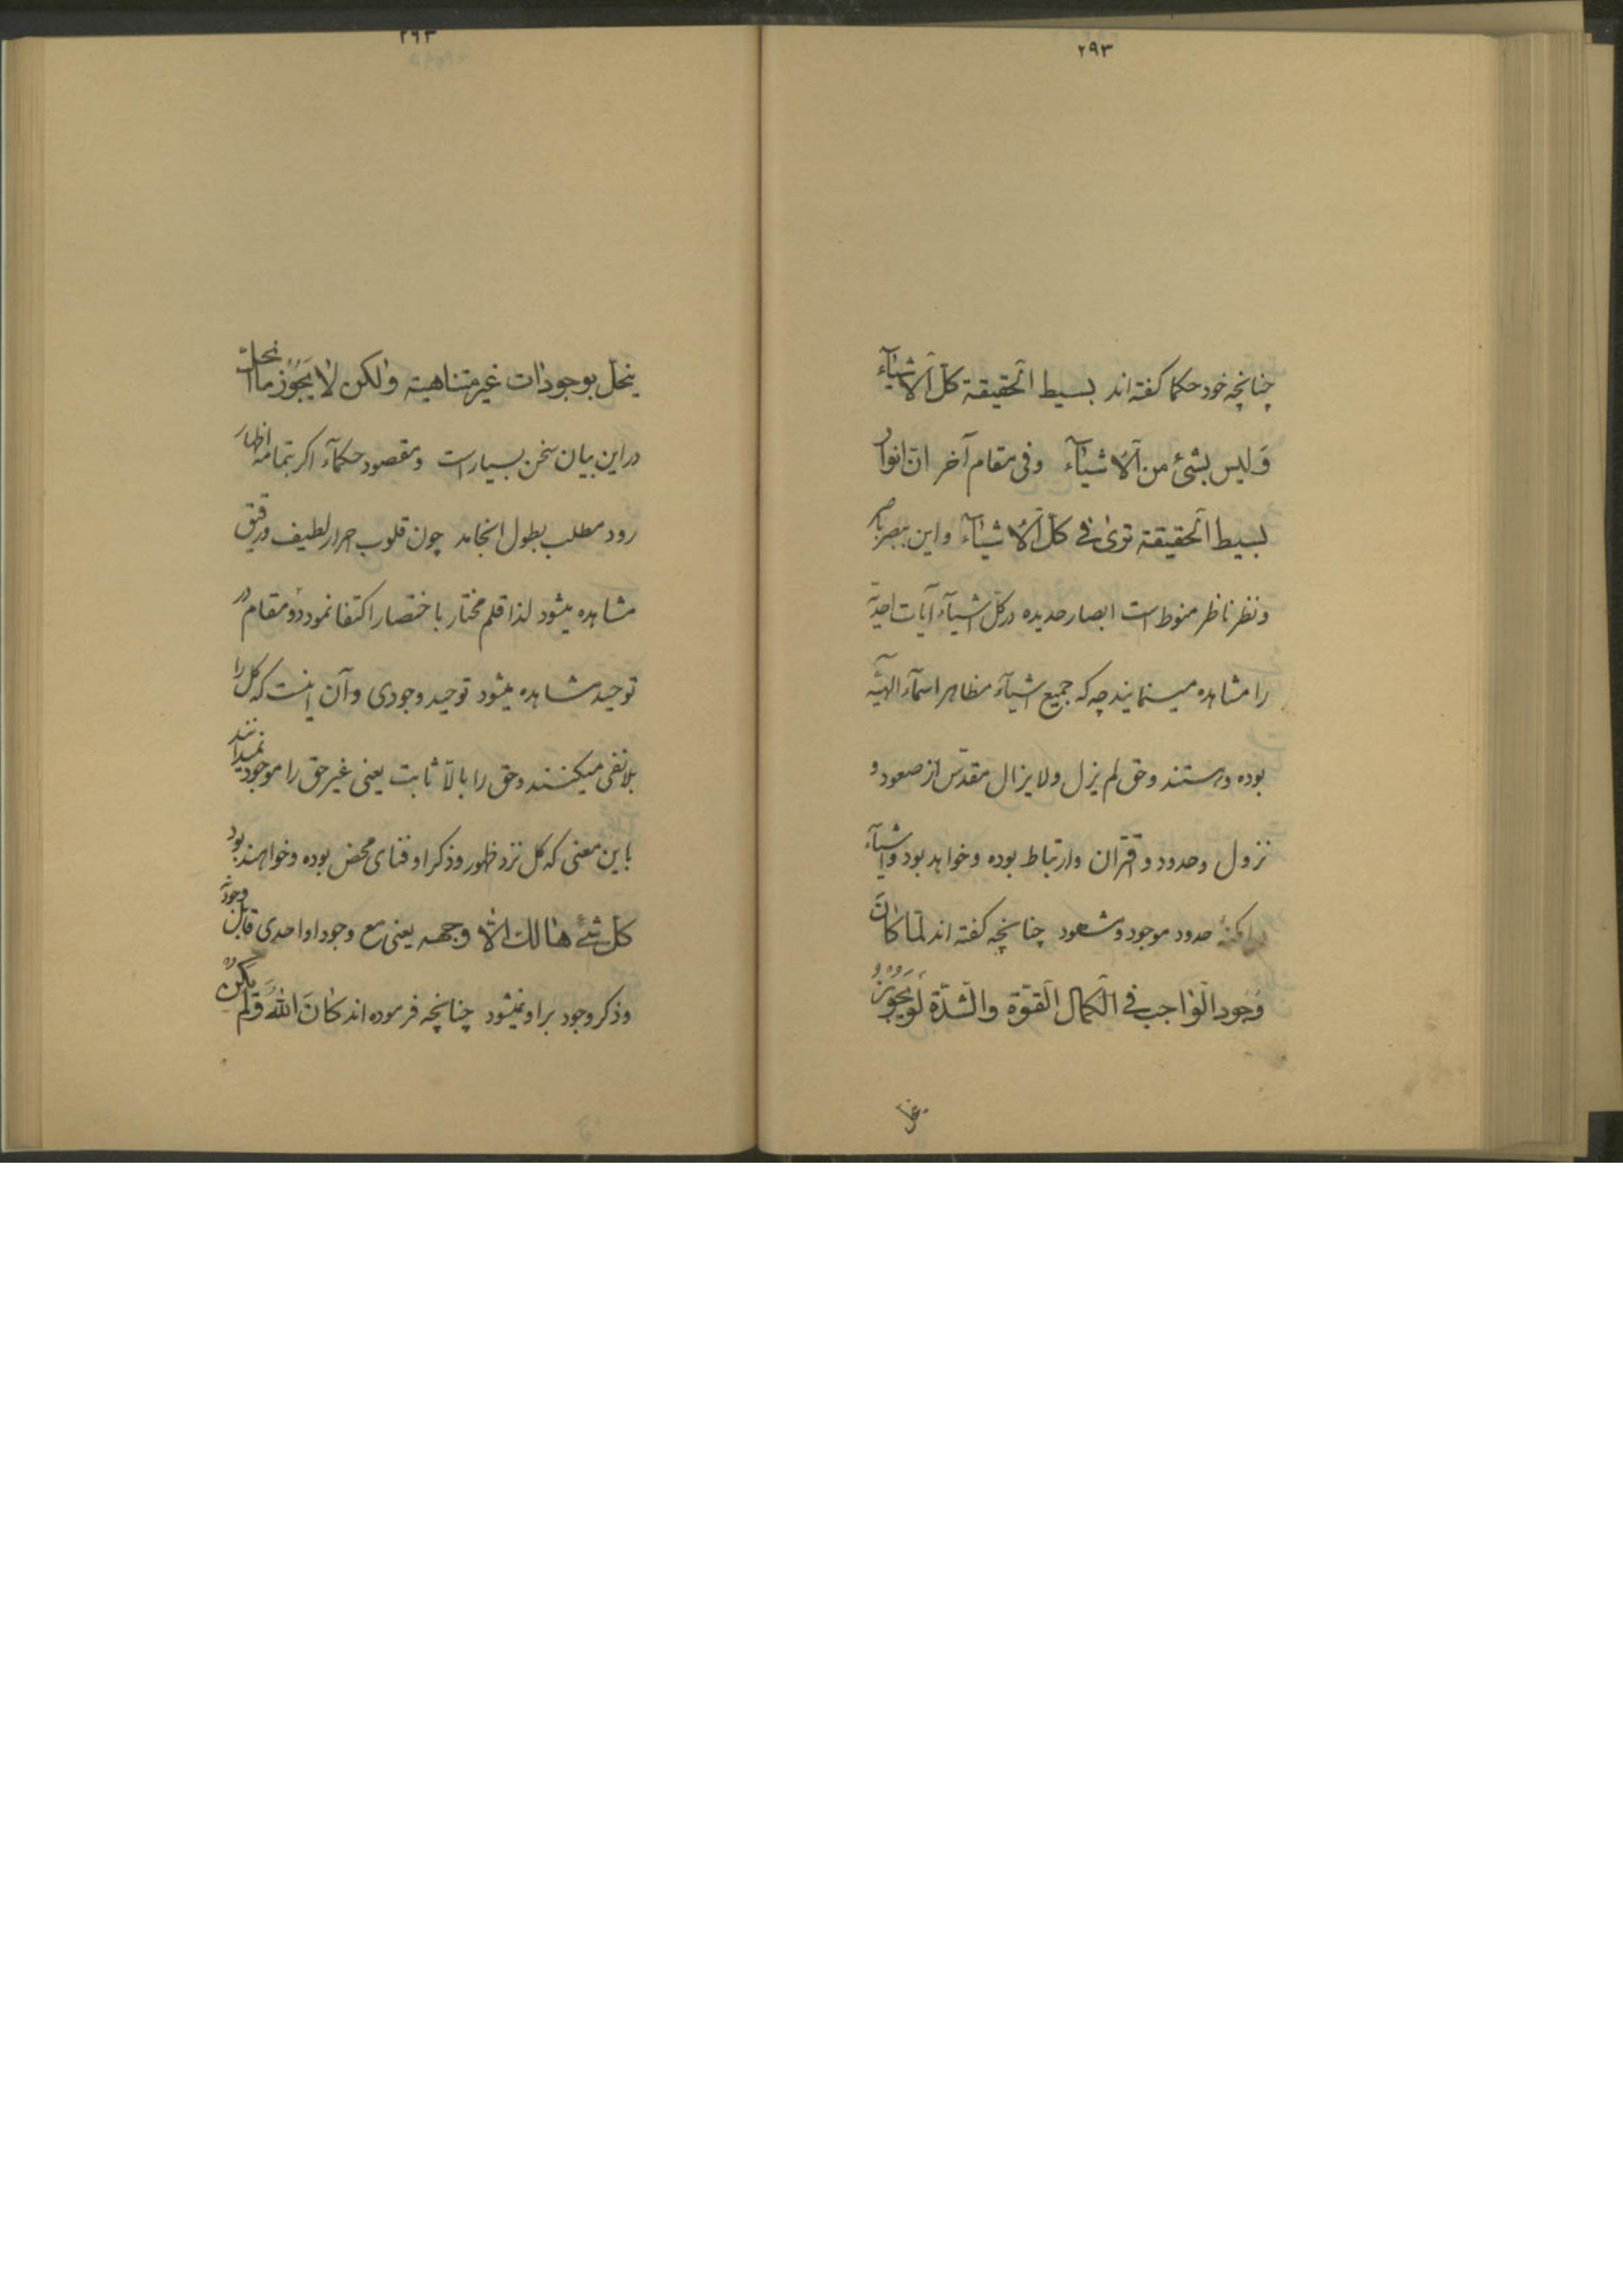 ۲۹۳
چنانچه خود حکما کفته اند بسیط الحقیقة کلّ الاشیآء
وَلیس بشیٔ من الاشیآء وفی مقام آخر انّ انوار
بسیط الحقیقة تریٰ فی کلّ الاشیآء واین ببصر باصر
ونظر ناظر منوط است ابصار حدیده در کلّ اشیآء آیات احدیّه
را مشاهده مینمایند چه که جمیع اشیآء مظاهر اسمآء الهیّه
بوده و هستند وحق لم یزل ولا یزال مقدّس از صعود و
نزول وحدود و اقتران وارتباط بوده وخواهد بود واشیآء
در امکنهٔ حدود موجود ومشهود چنانچه کفته اند لمّا کانَ
وُجود الواجب فی الکمال القوّة والشدّة لو یَجُوزُ
ینحلّ بوجودات غیر متناهیة ولکن لا یَجُوزُ ما انحلّ
در این بیان سخن بسیار است ومقصود حکمآء اکر بتمامه اظهار
رود مطلب بطول انجامد چون قلوب احرار لطیف ورقیق
مشاهده میشود لذا قلم مختار باختصار اکتفا نمود دو مقام در
توحید مشاهده میشود توحید وجودی وآن اینست که کل را
بلا نفی میکنند وحق را بالاّ ثابت یعنی غیر حق را موجود نمیدانند
باین معنی که کل نزد ظهور وذکر او فنای محض بوده وخواهند بود
کلّ شیٔ هالک الاّ وجهه یعنی مع وجود او احدی قابل وجود نه
وذکر وجود بر او نمیشود چنانچه فرموده اند کانَ اللهُ وَلم یَکُن